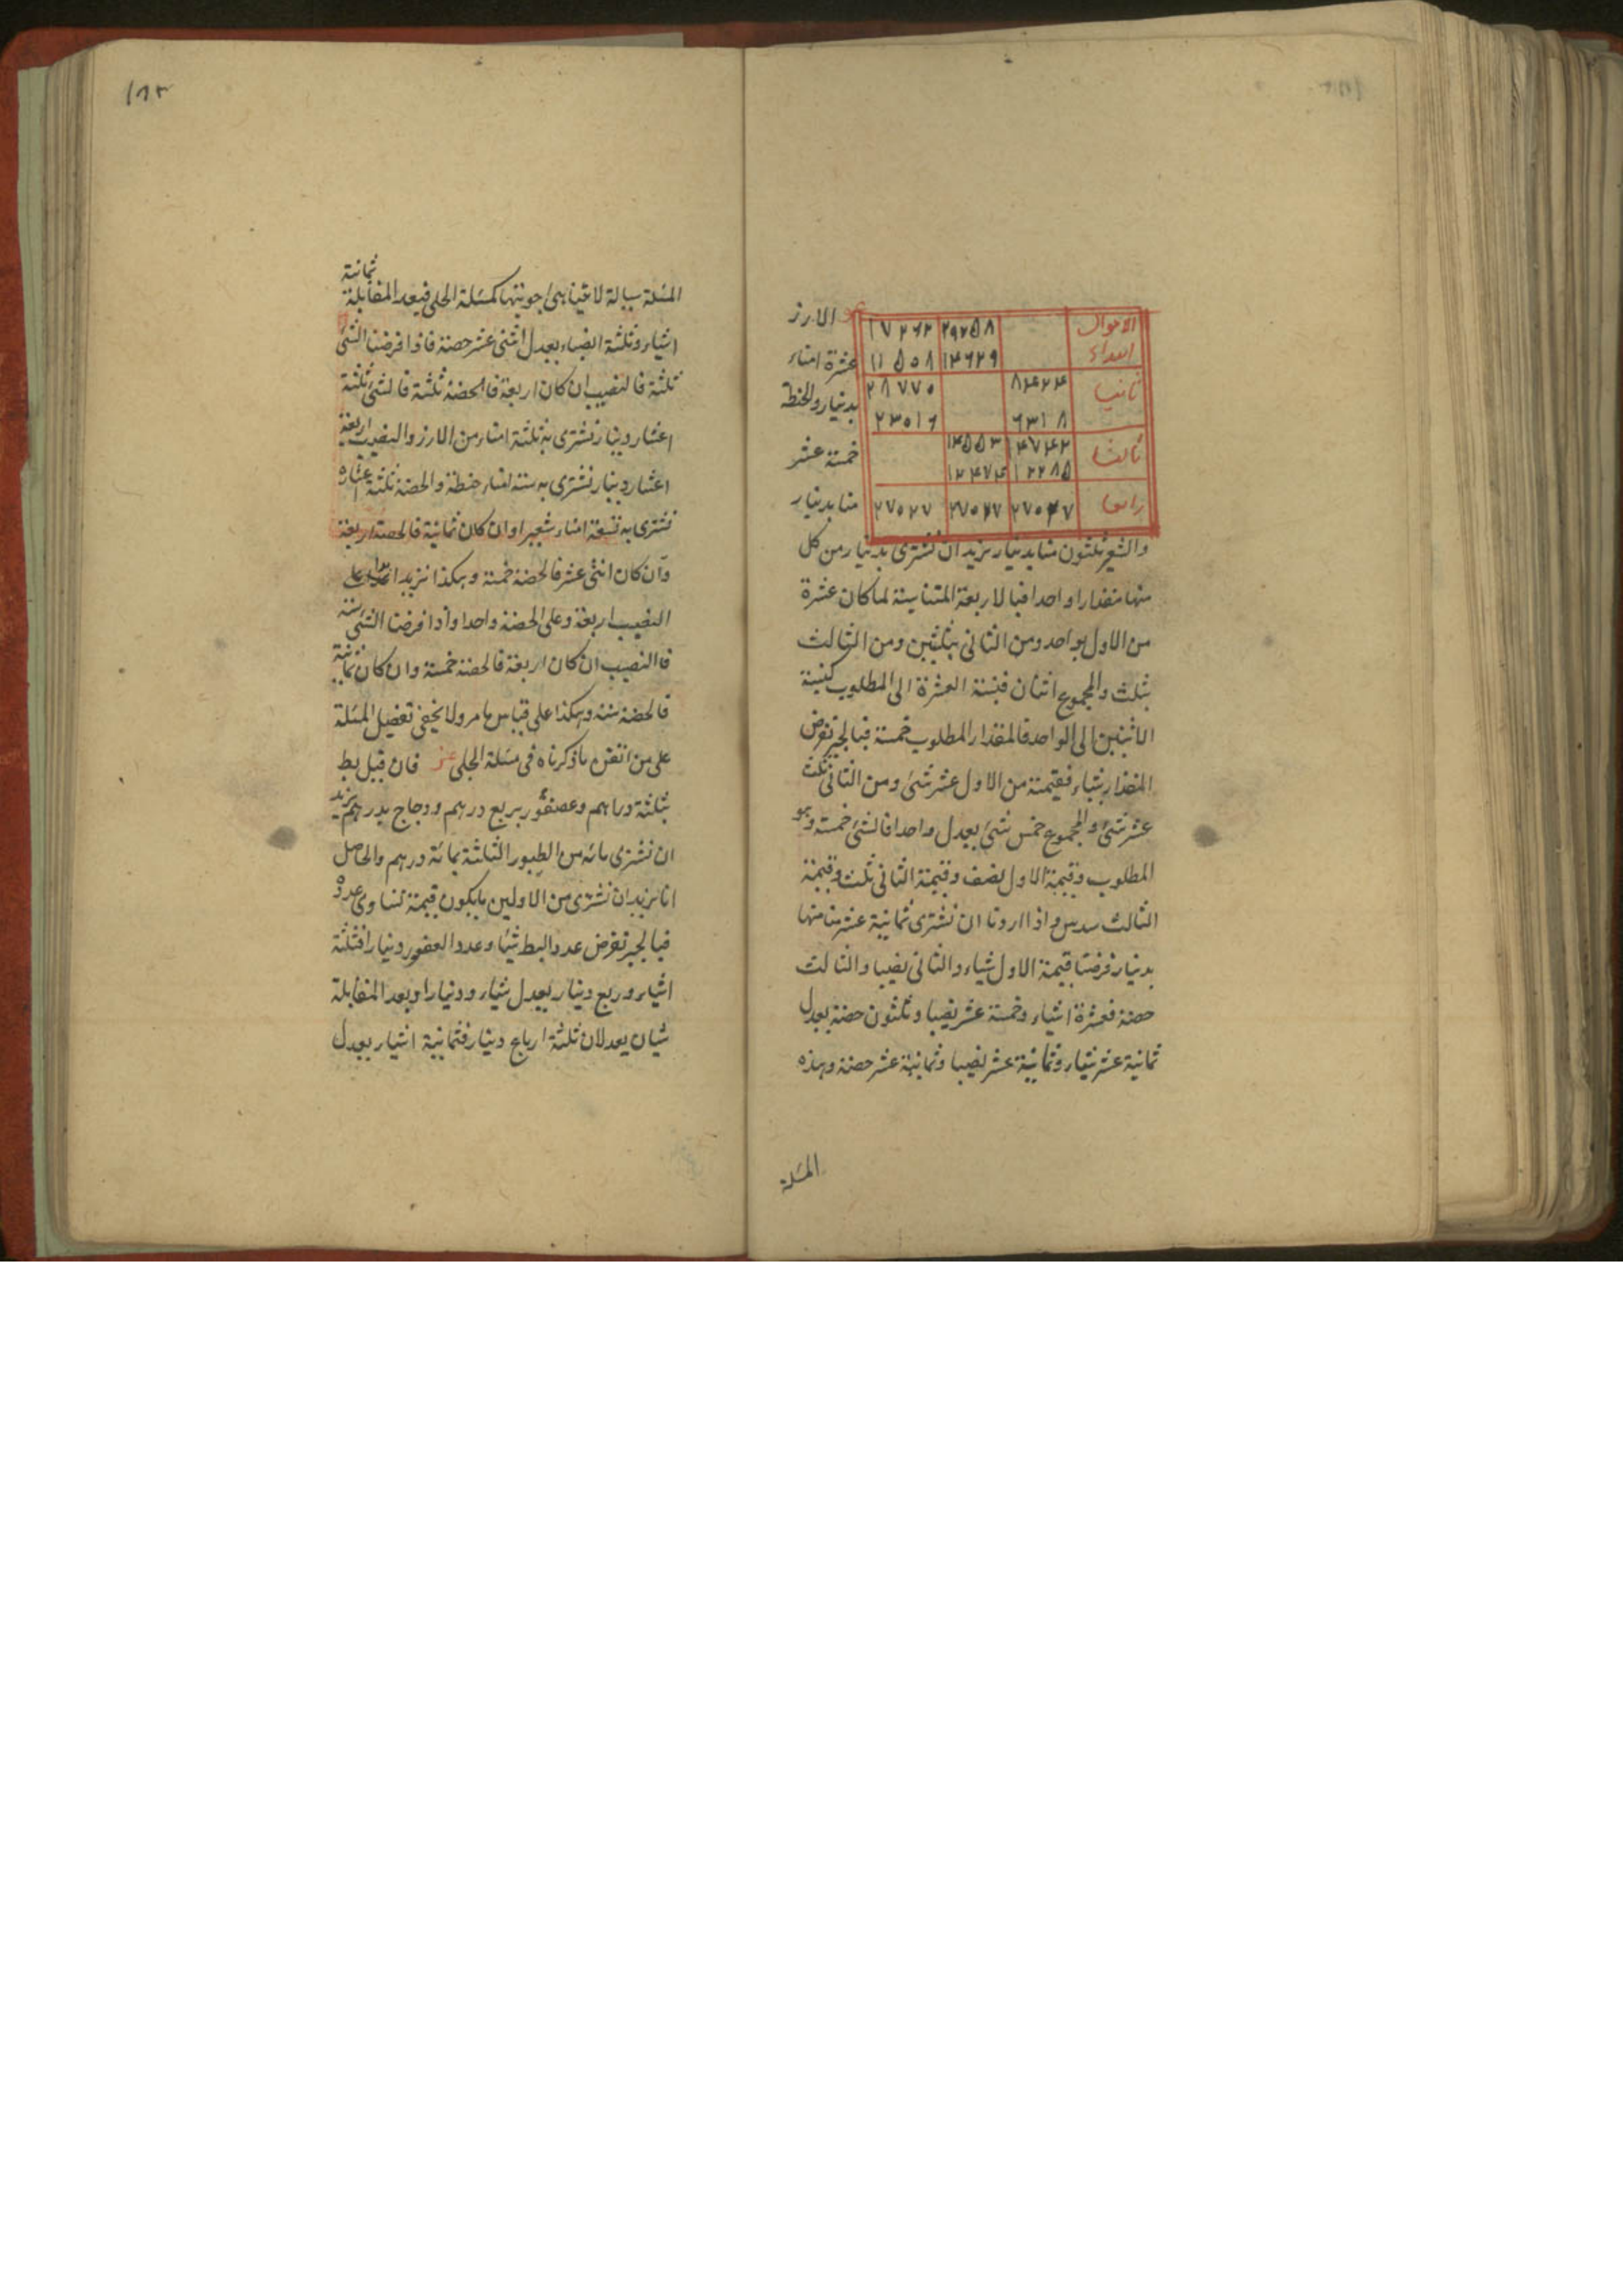 الارز
عشرة امناء
بدينار والحنطة
خمسة عشر
منا بدينار
الاحوال ابتداء ٢٩٢٥٨ ١٧٢٦٢
١٤٦٢٩ ١١٥٠٨
ثانيا ٨٤٢٤ ٢٨٧٧٠
٦٣١٨ ٢٣٠١٦
ثالثا
رابعا ٢٧٠٢٧ ٢٧٠٢٧ ٢٧٠٢٧
والشعير ثلثون منا بدينار نريد ان نشترى بدينار من كل
منها مقدارا واحدا فبالاربعة المتناسبة لما كان عشرة
من الاول بواحد ومن الثانى بثلثين ومن الثالث
بثلث والمجموع اثنان فنسبة العشرة الى المطلوب كنسبة
الاثنين الى الواحد فالمقدار المطلوب خمسة فبالجبر نفرض
المقدار شياء فقيمته من الاول عشر شئ ومن الثانى ثلث
عشر شئ والمجموع خمس شئ يعدل واحدا فالشئ خمسة وهو
المطلوب وقيمة الاول نصف وقيمة الثانى ثلث وقيمة
الثالث سدس واذا اردنا ان نشترى ثمانية عشر منا منها
بدينار فرضنا قيمة الاول شياء والثانى نصيبا والثالث
حصة فعشرة اشياء وخمسة عشر نصيبا وثلثون حصة يعدل
ثمانية عشر شياء وثمانية عشر نصيبا وثمانية عشر حصة وهذه
المسئلة
١٨٣
المسئلة سيالة لا يتناهى اجوبتها كمسئلة الحلى فبعد المقابلة ثمانية
اشياء وثلثة انصباء يعدل اثنى عشر حصة فاذا فرضنا الشئ
ثلثة فالنصيب ان كان اربعة فالحصة ثلثة فالشئ ثلثة
اعشار دينار نشترى به ثلثة امناء من الارز والنصيب اربعة
اعشار دينار نشترى به ستة امناء حنطة والحصة ثلثة اعشاره
نشترى به تسعة امناء شعيرا وان كان ثمانية فالحصة اربعة
وان كان اثنى عشر فالحصة خمسة وهكذا نزيد ابدا على
النصيب اربعة وعلى الحصة واحدا واذا فرضنا الشئ ستة
فالنصيب ان كان اربعة فالحصة خمسة وان كان ثمانية
فالحصة ستة وهكذا على قياس ما مر ولا يخفى تفصيل المسئلة
على من اتقن ما ذكرناه فى مسئلة الحلى فان قيل بط
بثلثة دراهم وعصفور بربع درهم ودجاج بدرهم نريد
ان نشترى مائة من الطيور الثلثة بمائة درهم والحاصل
انا نريد ان نشترى من الاولين ما يكون قيمته تساوى عدده
فبالجبر نفرض عدد البط شيئا وعدد العصفور دينارا فثلثة
اشياء وربع دينار يعدل شياء ودينارا وبعد المقابلة
شيان يعدلان ثلثة ارباع دينار فثمانية اشياء يعدل